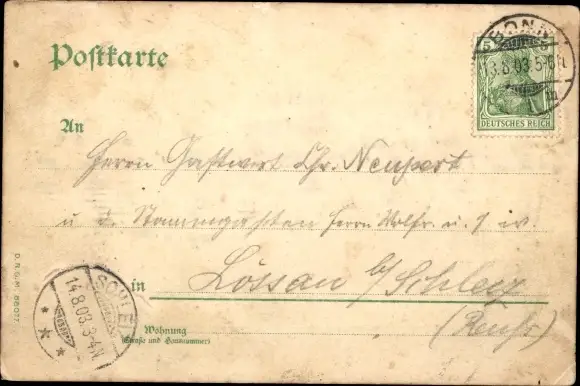 Postkarte
BONN
13.8.03.5-6N.
5 5
DEUTSCHES REICH
An
Herrn Gastwirt Chr. Neupert
u. d. Stammgästen Herrn Wolfr. u. s. w.
in Lössau b/ Schleiz
(Reuß)
Wohnung
(Straße und Hausnummer)
SCHLEIZ
14.8.03.3-4N
D.R.G.M. 88077